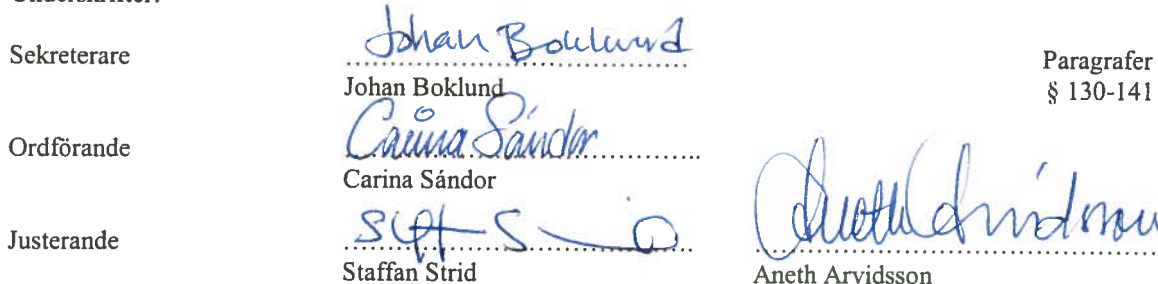 Sekreterare
Johan Boklund
Johan Boklund
Paragrafer
§ 130-141
Ordförande
Carina Sándor
Carina Sándor
Justerande
Staffan Strid
Aneth Arvidsson
Aneth Arvidsson